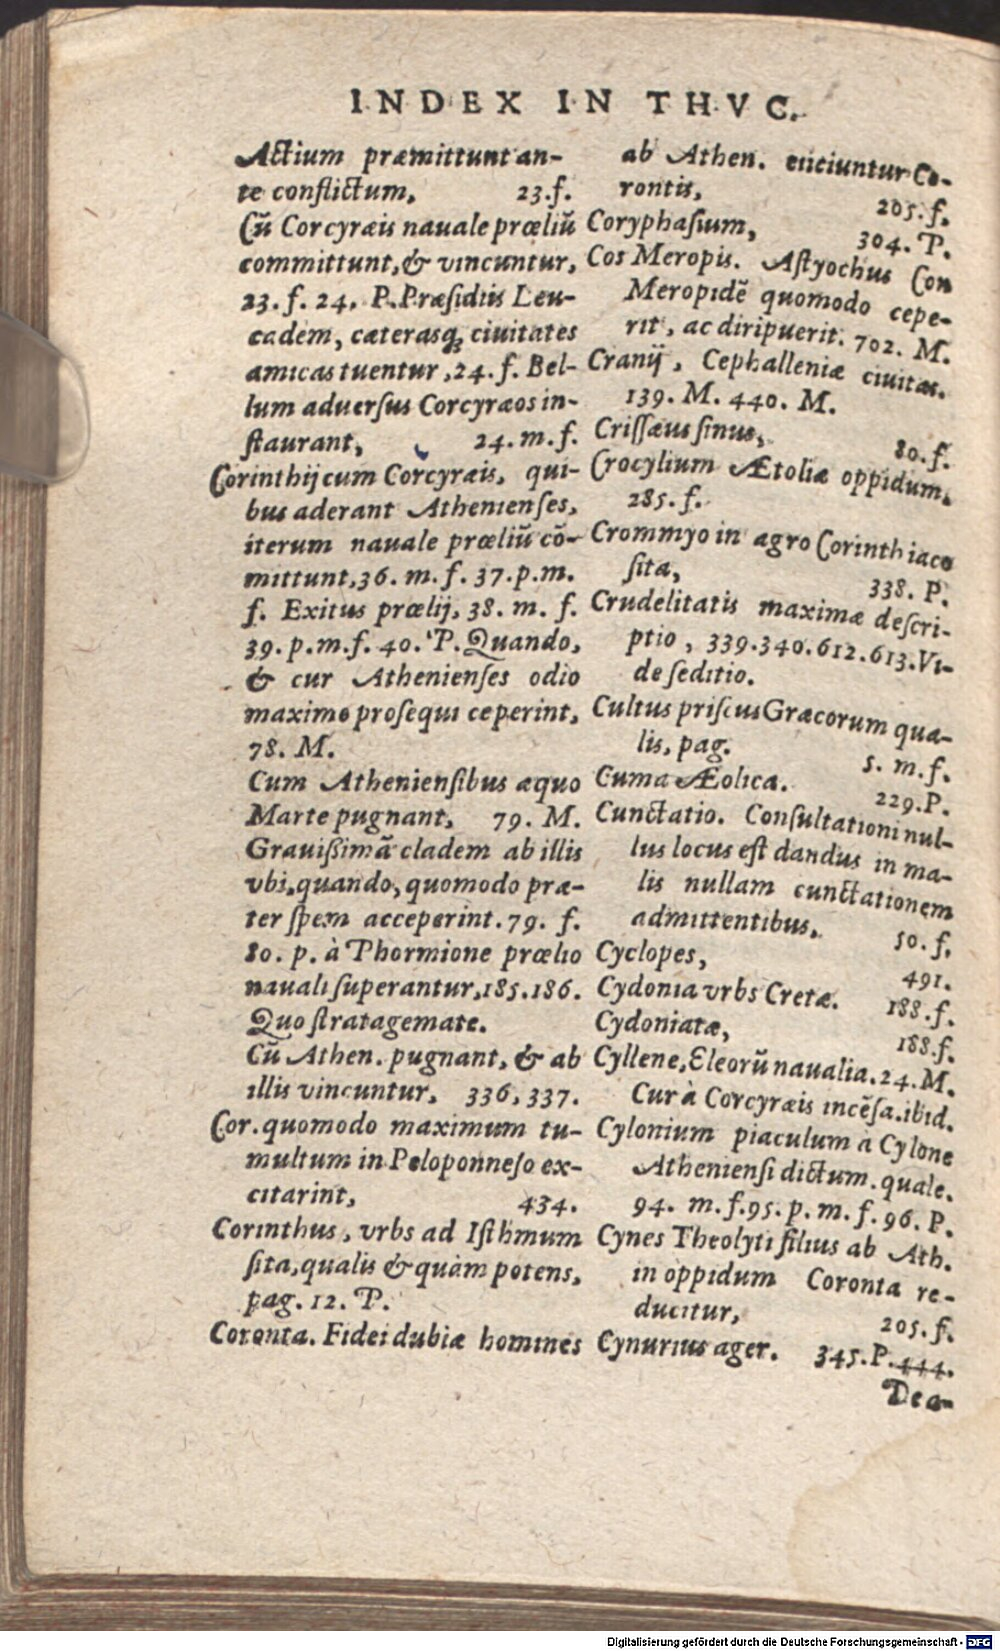 INDEX IN THVC.
Actium præmittunt an-
te conflictum, 23.f.
Cū Corcyræis nauale prœliū
committunt, & vincuntur,
23. f. 24. P. Præsidiis Leu-
cadem, cæterasq; ciuitates
amicas tuentur, 24. f. Bel-
lum aduersus Corcyræos in-
staurant, 24. m. f.
Corinthij cum Corcyræis, qui-
bus aderant Athenienses,
iterum nauale prœliū cō-
mittunt, 36. m. f. 37. p. m.
f. Exitus prœlij, 38. m. f.
39. p. m. f. 40. P. Quando,
& cur Athenienses odio
maximo prosequi ceperint,
78. M.
Cum Atheniensibus æquo
Marte pugnant, 79. M.
Grauissimā cladem ab illis
vbi, quando, quomodo præ-
ter spem acceperint. 79. f.
80. p. à Phormione prœlio
nauali superantur, 185. 186.
Quo stratagemate.
Cū Athen. pugnant, & ab
illis vincuntur, 336, 337.
Cor. quomodo maximum tu-
multum in Peloponneso ex-
citarint, 434.
Corinthus, vrbs ad Isthmum
sita, qualis & quàm potens,
pag. 12. P.
Coronta. Fidei dubiæ homines
ab Athen. eiiciuntur Co-
rontis, 205. f.
Coryphasium, 304. P.
Cos Meropis. Astyochus Con
Meropidē quomodo cepe-
rit, ac diripuerit. 702. M.
Cranij, Cephalleniæ ciuitas.
139. M. 440. M.
Crissæus sinus, 80. f.
Crocylium Ætoliæ oppidum,
285. f.
Crommyo in agro Corinthiaco
sita, 338. P.
Crudelitatis maximæ descri-
ptio, 339. 340. 612. 613. Vi-
de seditio.
Cultus priscus Græcorum qua-
lis, pag. 5. m. f.
Cuma Æolica. 229. P.
Cunctatio. Consultationi nul-
lus locus est dandus in ma-
lis nullam cunctationem
admittentibus, 50. f.
Cyclopes, 491.
Cydonia vrbs Cretæ. 188. f.
Cydoniatæ, 188. f.
Cyllene, Eleorū naualia. 24. M.
Cur à Corcyræis incēsa. ibid.
Cylonium piaculum à Cylone
Atheniensi dictum. quale.
94. m. f. 95. p. m. f. 96. P.
Cynes Theolyti filius ab Ath.
in oppidum Coronta re-
ducitur, 205. f.
Cynurius ager. 345. P. 444.
Dea-
Digitalisierung gefördert durch die Deutsche Forschungsgemeinschaft - DFG